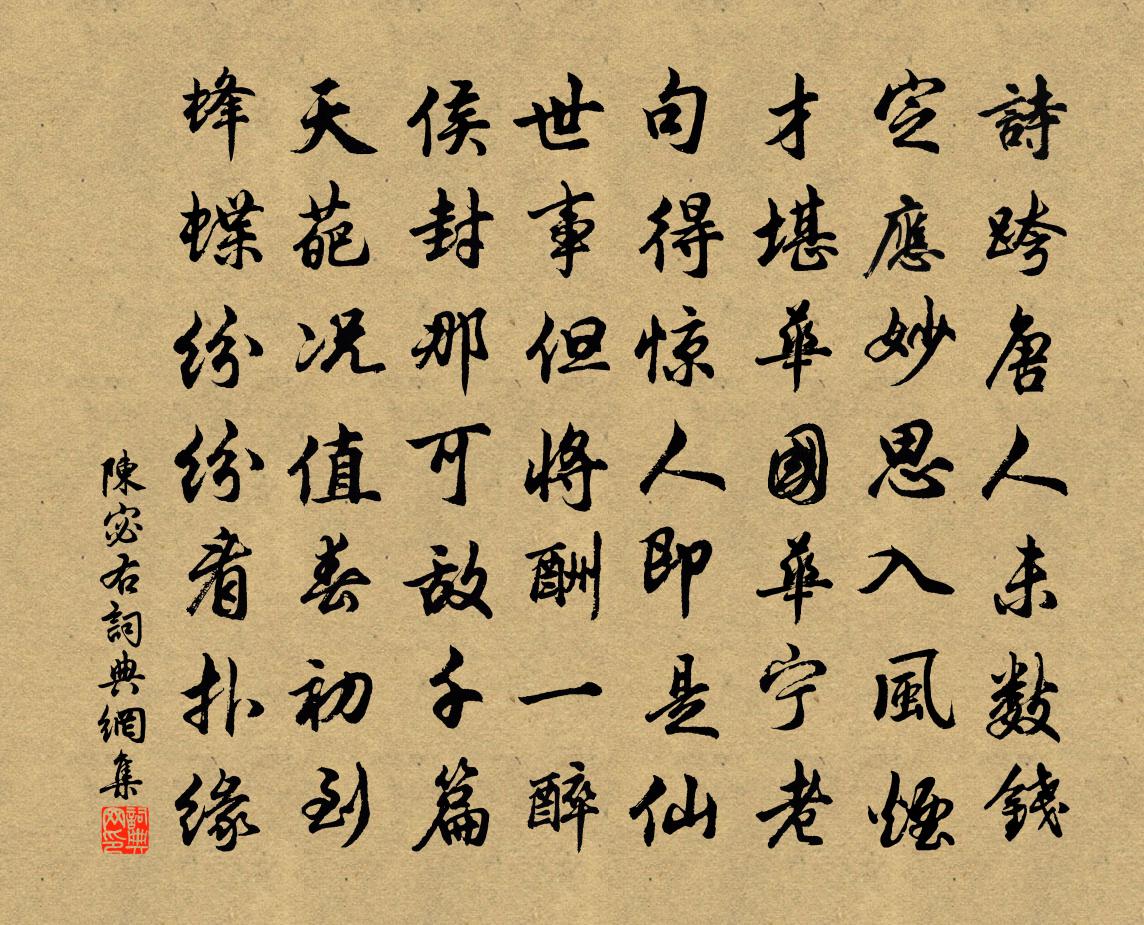 詩跨唐人未數錢
定應妙思入風煙
才堪華國華宁老
句得惊人即是仙
世事但將酬一醉
侯封那可敌千篇
天葩况值春初到
蜂蝶紛紛看扑緣
陳宓右詞典網集
詞典网印